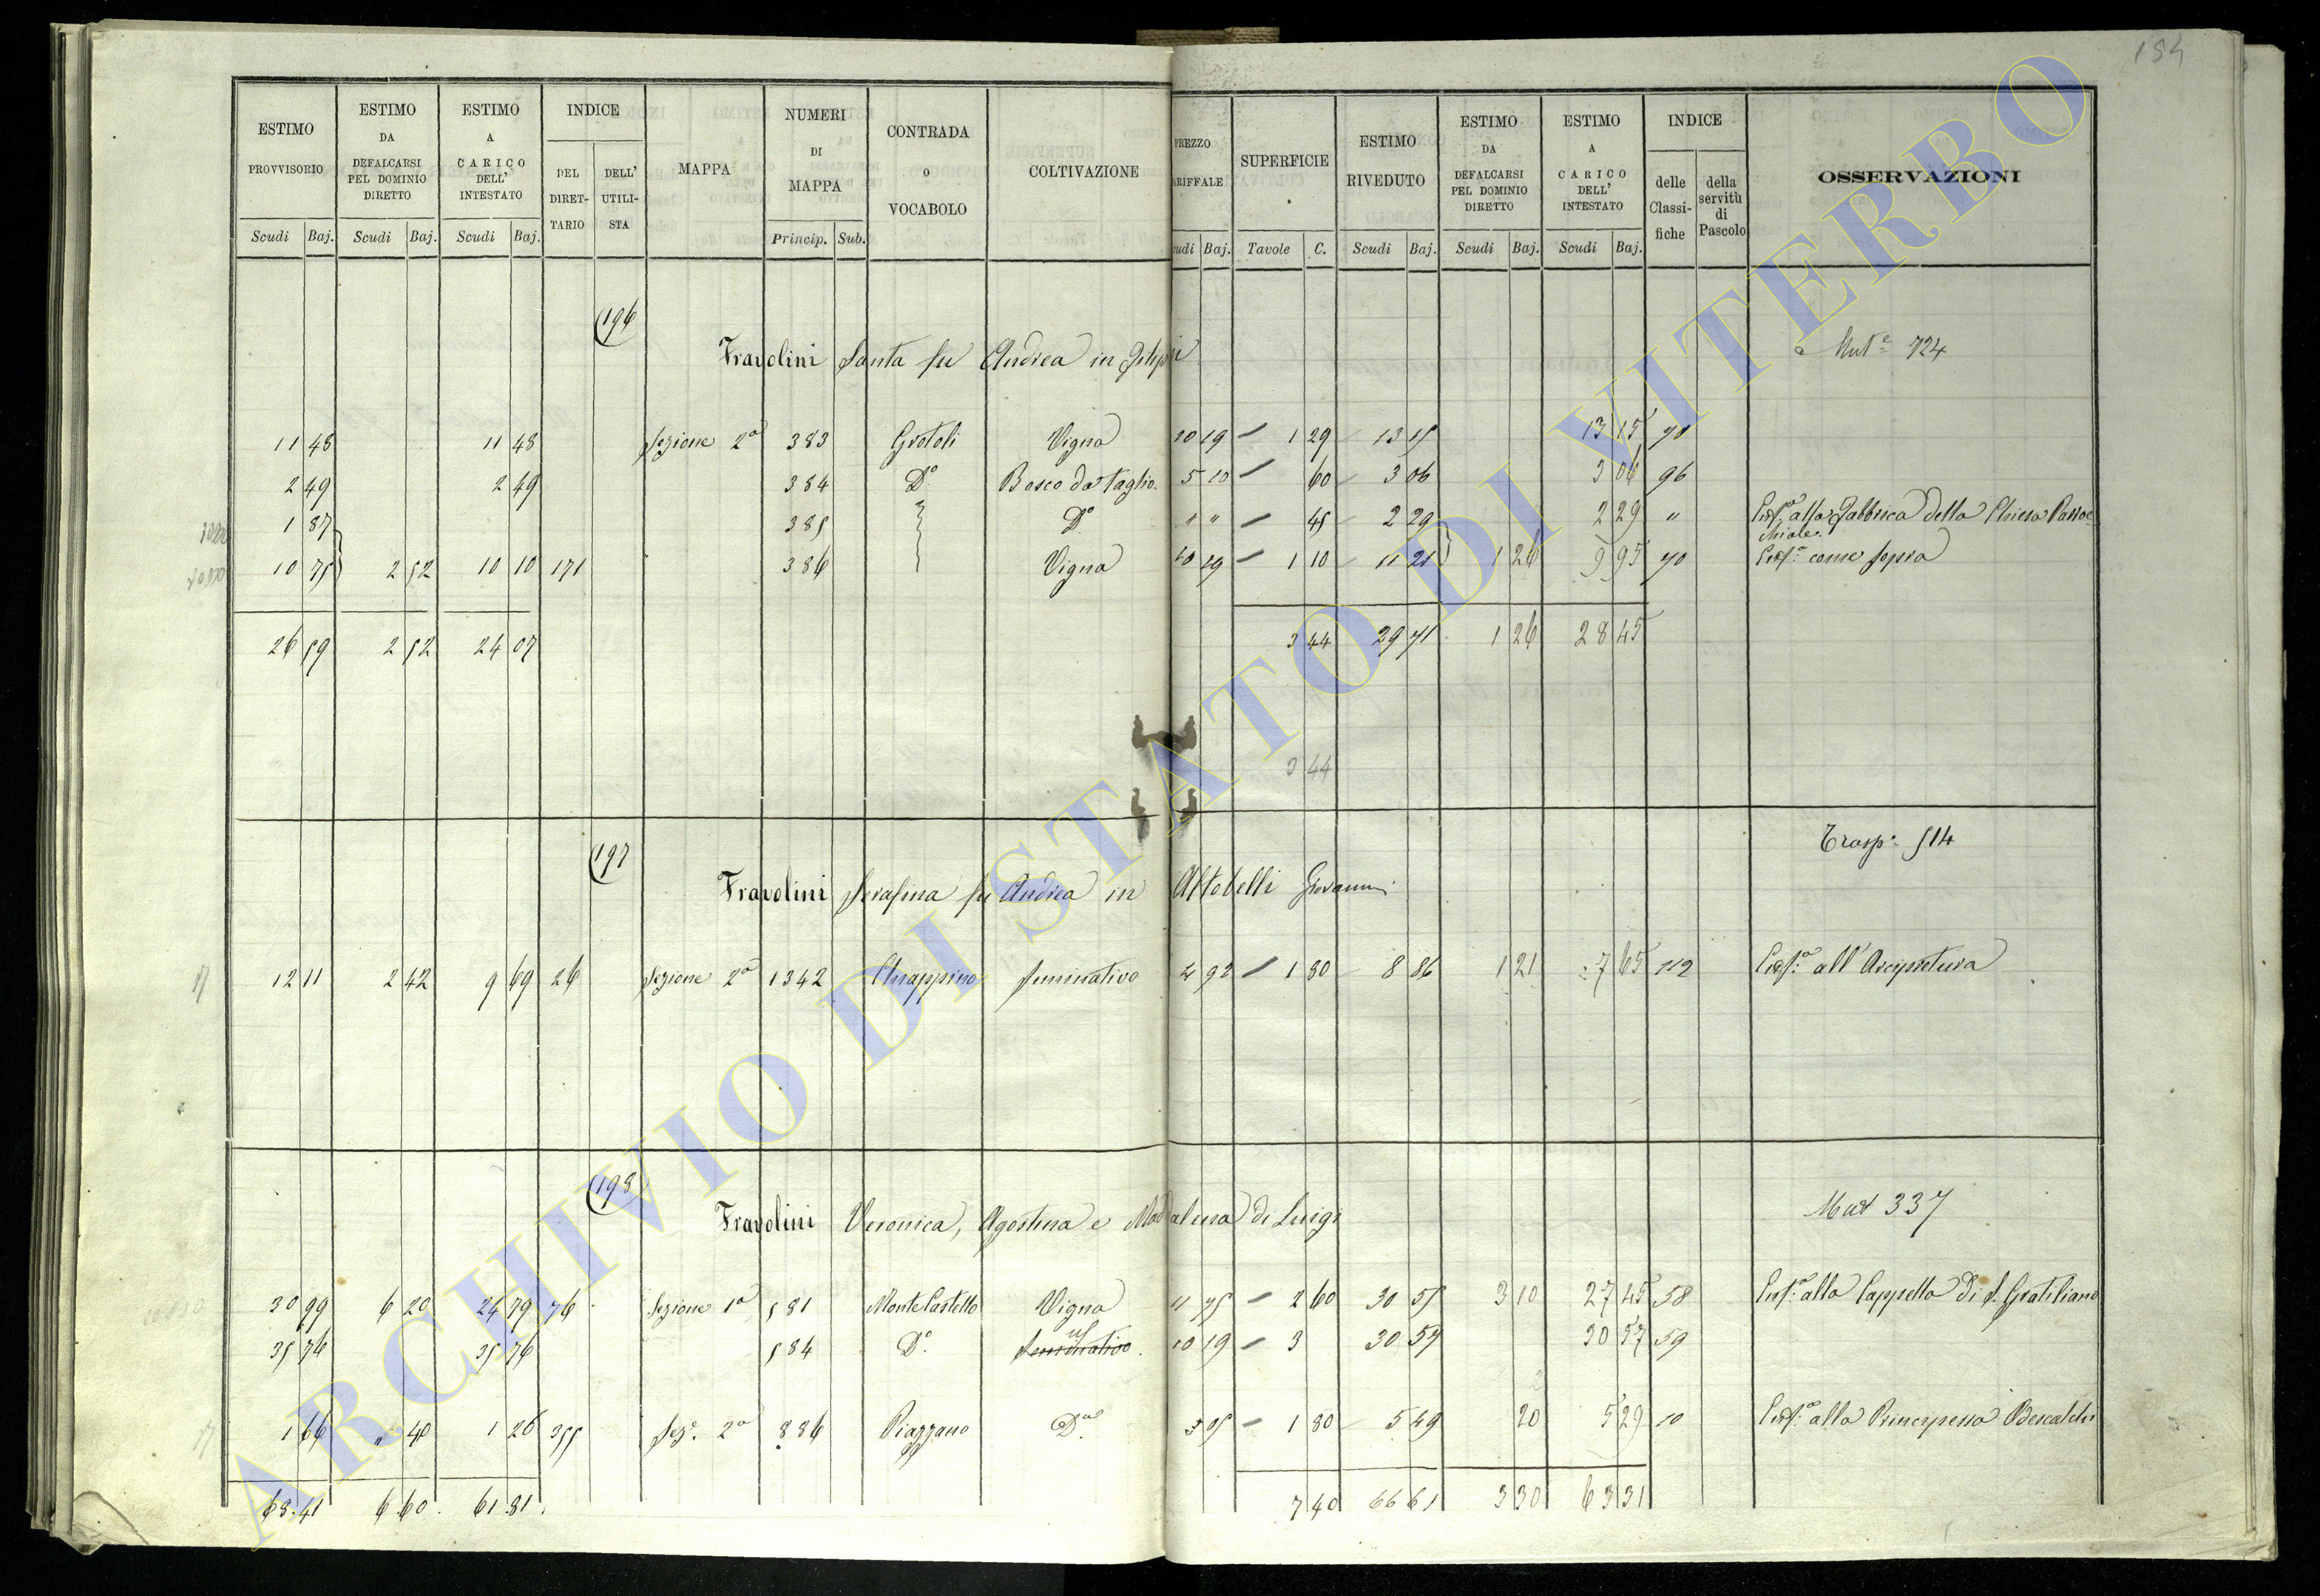 154
ESTIMO PROVVISORIO Scudi Baj. ESTIMO DA DEFALCARSI PEL DOMINIO DIRETTO Scudi Baj. ESTIMO A CARICO DELL' INTESTATO Scudi Baj. INDICE DEL DIRETTARIO DELL' UTILISTA MAPPA NUMERI DI MAPPA Princip. Sub. CONTRADA O VOCABOLO COLTIVAZIONE PREZZO ARIFFALE udi Baj. SUPERFICIE Tavole C. ESTIMO RIVEDUTO Scudi Baj. ESTIMO DA DEFALCARSI PEL DOMINIO DIRETTO Scudi Baj. ESTIMO A CARICO DELL' INTESTATO Scudi Baj. INDICE delle Classifiche della servitù di Pascolo OSSERVAZIONI
196
Fravolini Santa fu Andrea in Filippi
Mut.e 724
11 48 11 48 Sezione 2a 383 Grotoli Vigna 10 19 — 1 29 — 13 15 13 15 70
2 49 2 49 384 Do Bosco da Taglio 5 10 — 60 — 3 06 3 06 96
1 87 385 Do " " — 45 — 2 29 2 29 " alla Fabbrica della Chiesa Parrocchiale
10 75 2 52 10 10 171 386 Vigna 10 19 — 1 10 — 11 21 1 26 9 95 70 come sopra
26 59 2 52 24 07 3 44 29 71 1 26 28 45
3 44
197
Trasp. 514
Fravolini Serafina fu Andrea in Altobelli Giovanni
12 11 2 42 9 69 26 Sezione 2a 1342 Chiappino Seminativo 4 92 — 1 80 — 8 86 1 21 7 65 112 all'Arcipretura
198
Mut 337
Fravolini Veronica, Agostina e Madalena di Luigi
30 99 6 20 24 79 76 Sezione 1a 581 Monte Castello Vigna 11 75 — 2 60 30 55 3 10 27 45 58 alla Cappella di S. Gratiliano
35 76 35 76 584 Do Seminativo 10 19 — 3 30 57 30 57 59
1 66 " 40 1 26 355 Sez. 2a 886 Piazzano Do 3 05 — 1 80 — 5 49 20 5 29 10 alla Principessa Odescalchi
68.41 6 60 61 81 7 40 66 61 3 30 63 31
ARCHIVIO DI STATO DI VITERBO